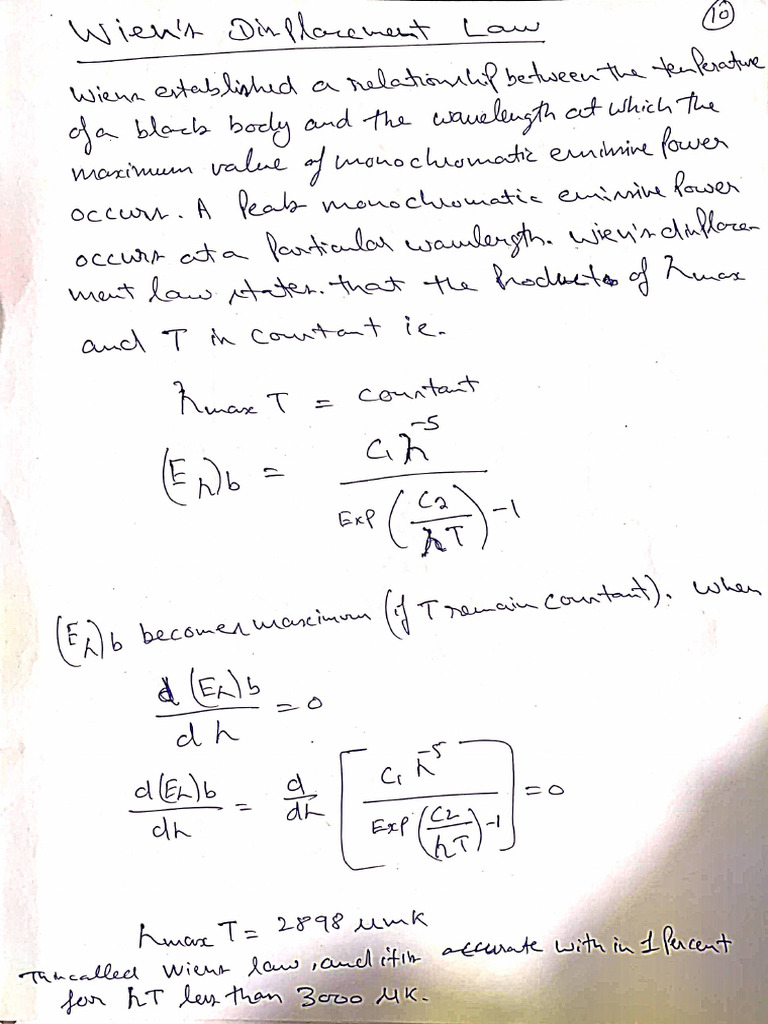 Wien's Displacement Law
10
Wiens established a relationship between the temperature
of a black body and the wavelength at which the
maximum value of monochromatic emissive power
occurs. A Peak monochromatic emissive Power
occurs at a Particular wavelength. Wien's displace-
ment law states that the Products of λmax
and T is constant ie.
λmax T = constant
(Eλ)b = C1 λ^-5 / Exp (C2/λT) -1
(Eλ)b becomes maximum (if T remain constant). when
d (Eλ)b / dλ = 0
d(Eλ)b / dλ = d/dλ [ C1 λ^-5 / Exp (C2/λT) -1 ] = 0
λmax T = 2898 μmK
called Wiens law, and it is accurate with in 1 Percent
for λT less than 3000 μK.